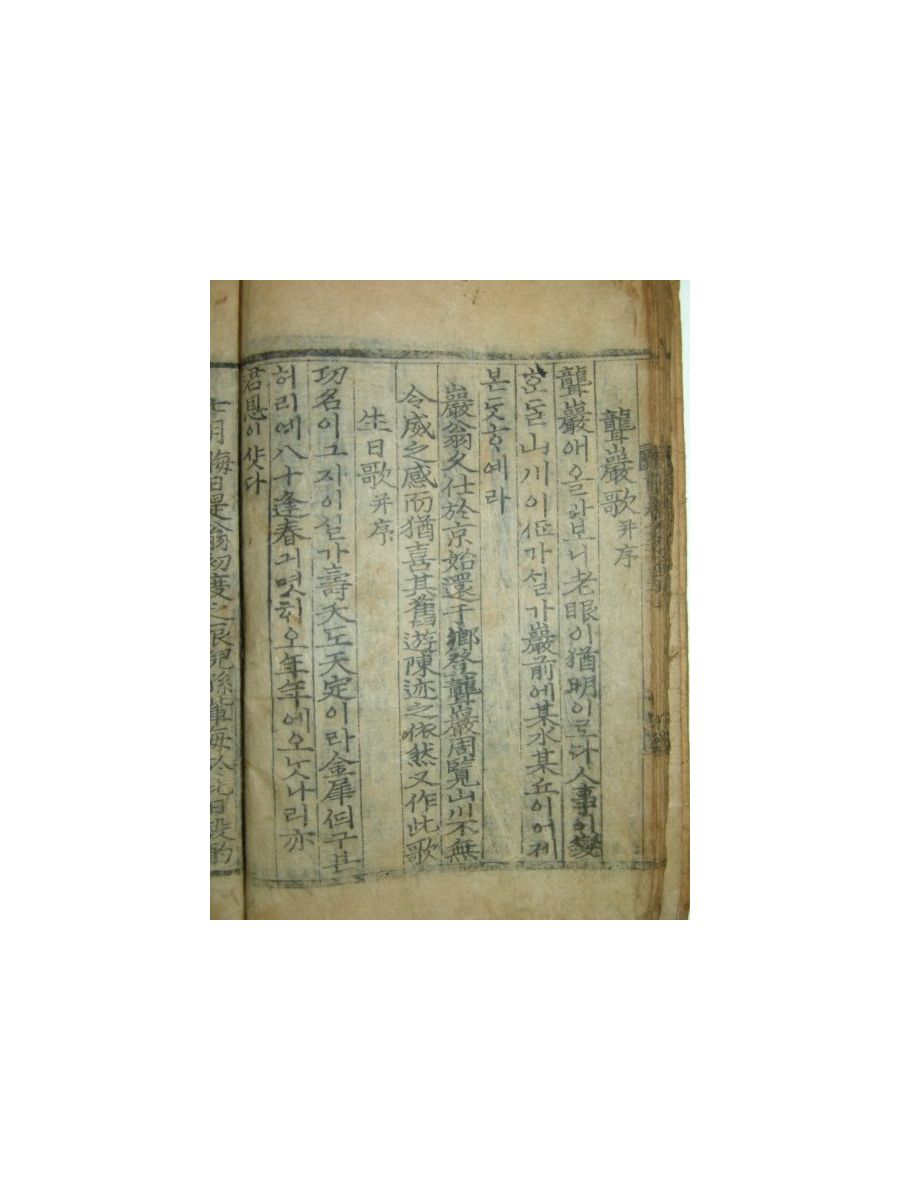 聾巖歌 并序
聾巖애 올라보니 老眼이 猶明이로다 人事이 變
ᄒᆞᆫᄃᆞᆯ 山川이ᄯᆞᆫ 가실가 巖前에 某水某丘이 어제
본ᄃᆞᆺᄒᆞ예라
巖翁久仕於京始還于鄕登聾巖周覽山川不無
令威之感而猶喜其舊遊陳迹之依然又作此歌
生日歌 并序
功名이 그지이실가 壽夭도 天定이라 金犀ᄯᅴ 구븐
허리예 八十逢春 긔몃ᄒᆡ오 年年에 오ᄂᆞᆺ나리 亦
君恩이샷다
七月晦日是翁初度之辰兒孫輩每於此日設酌